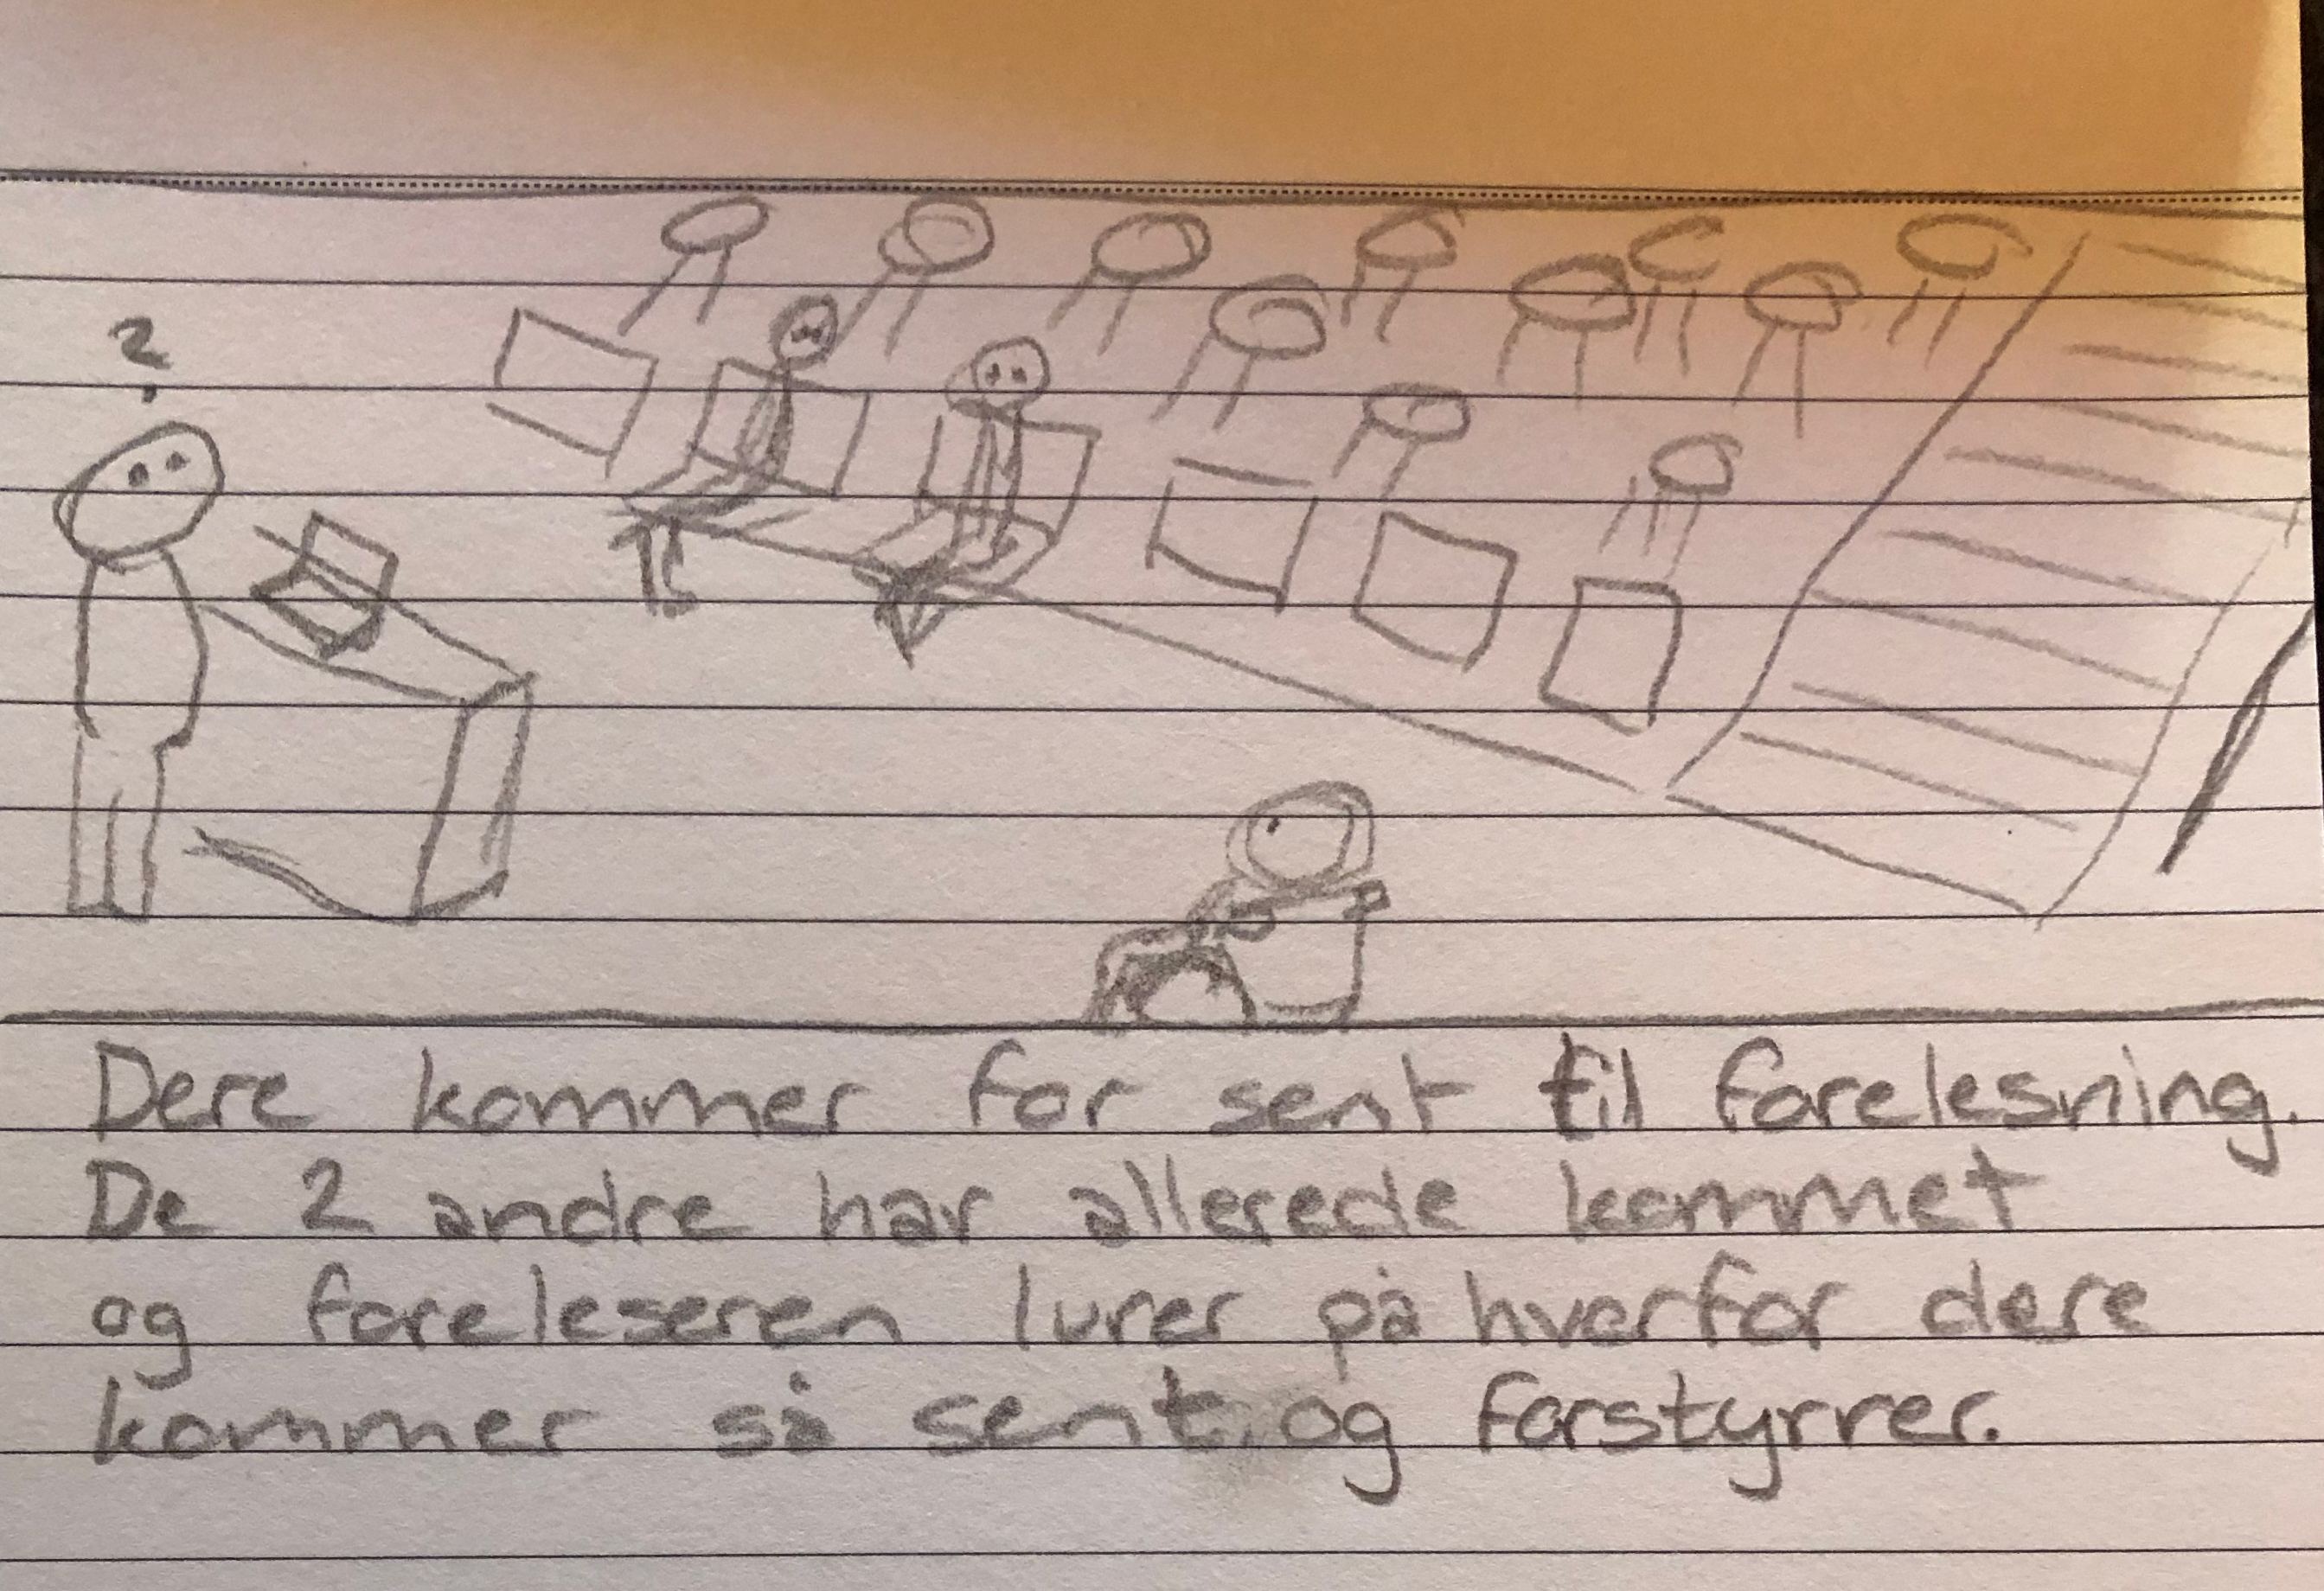 ?
Dere kommer for sent til forelesning.
De 2 andre har allerede kommet
og foreleseren lurer på hvorfor dere
kommer så sent og forstyrrer.